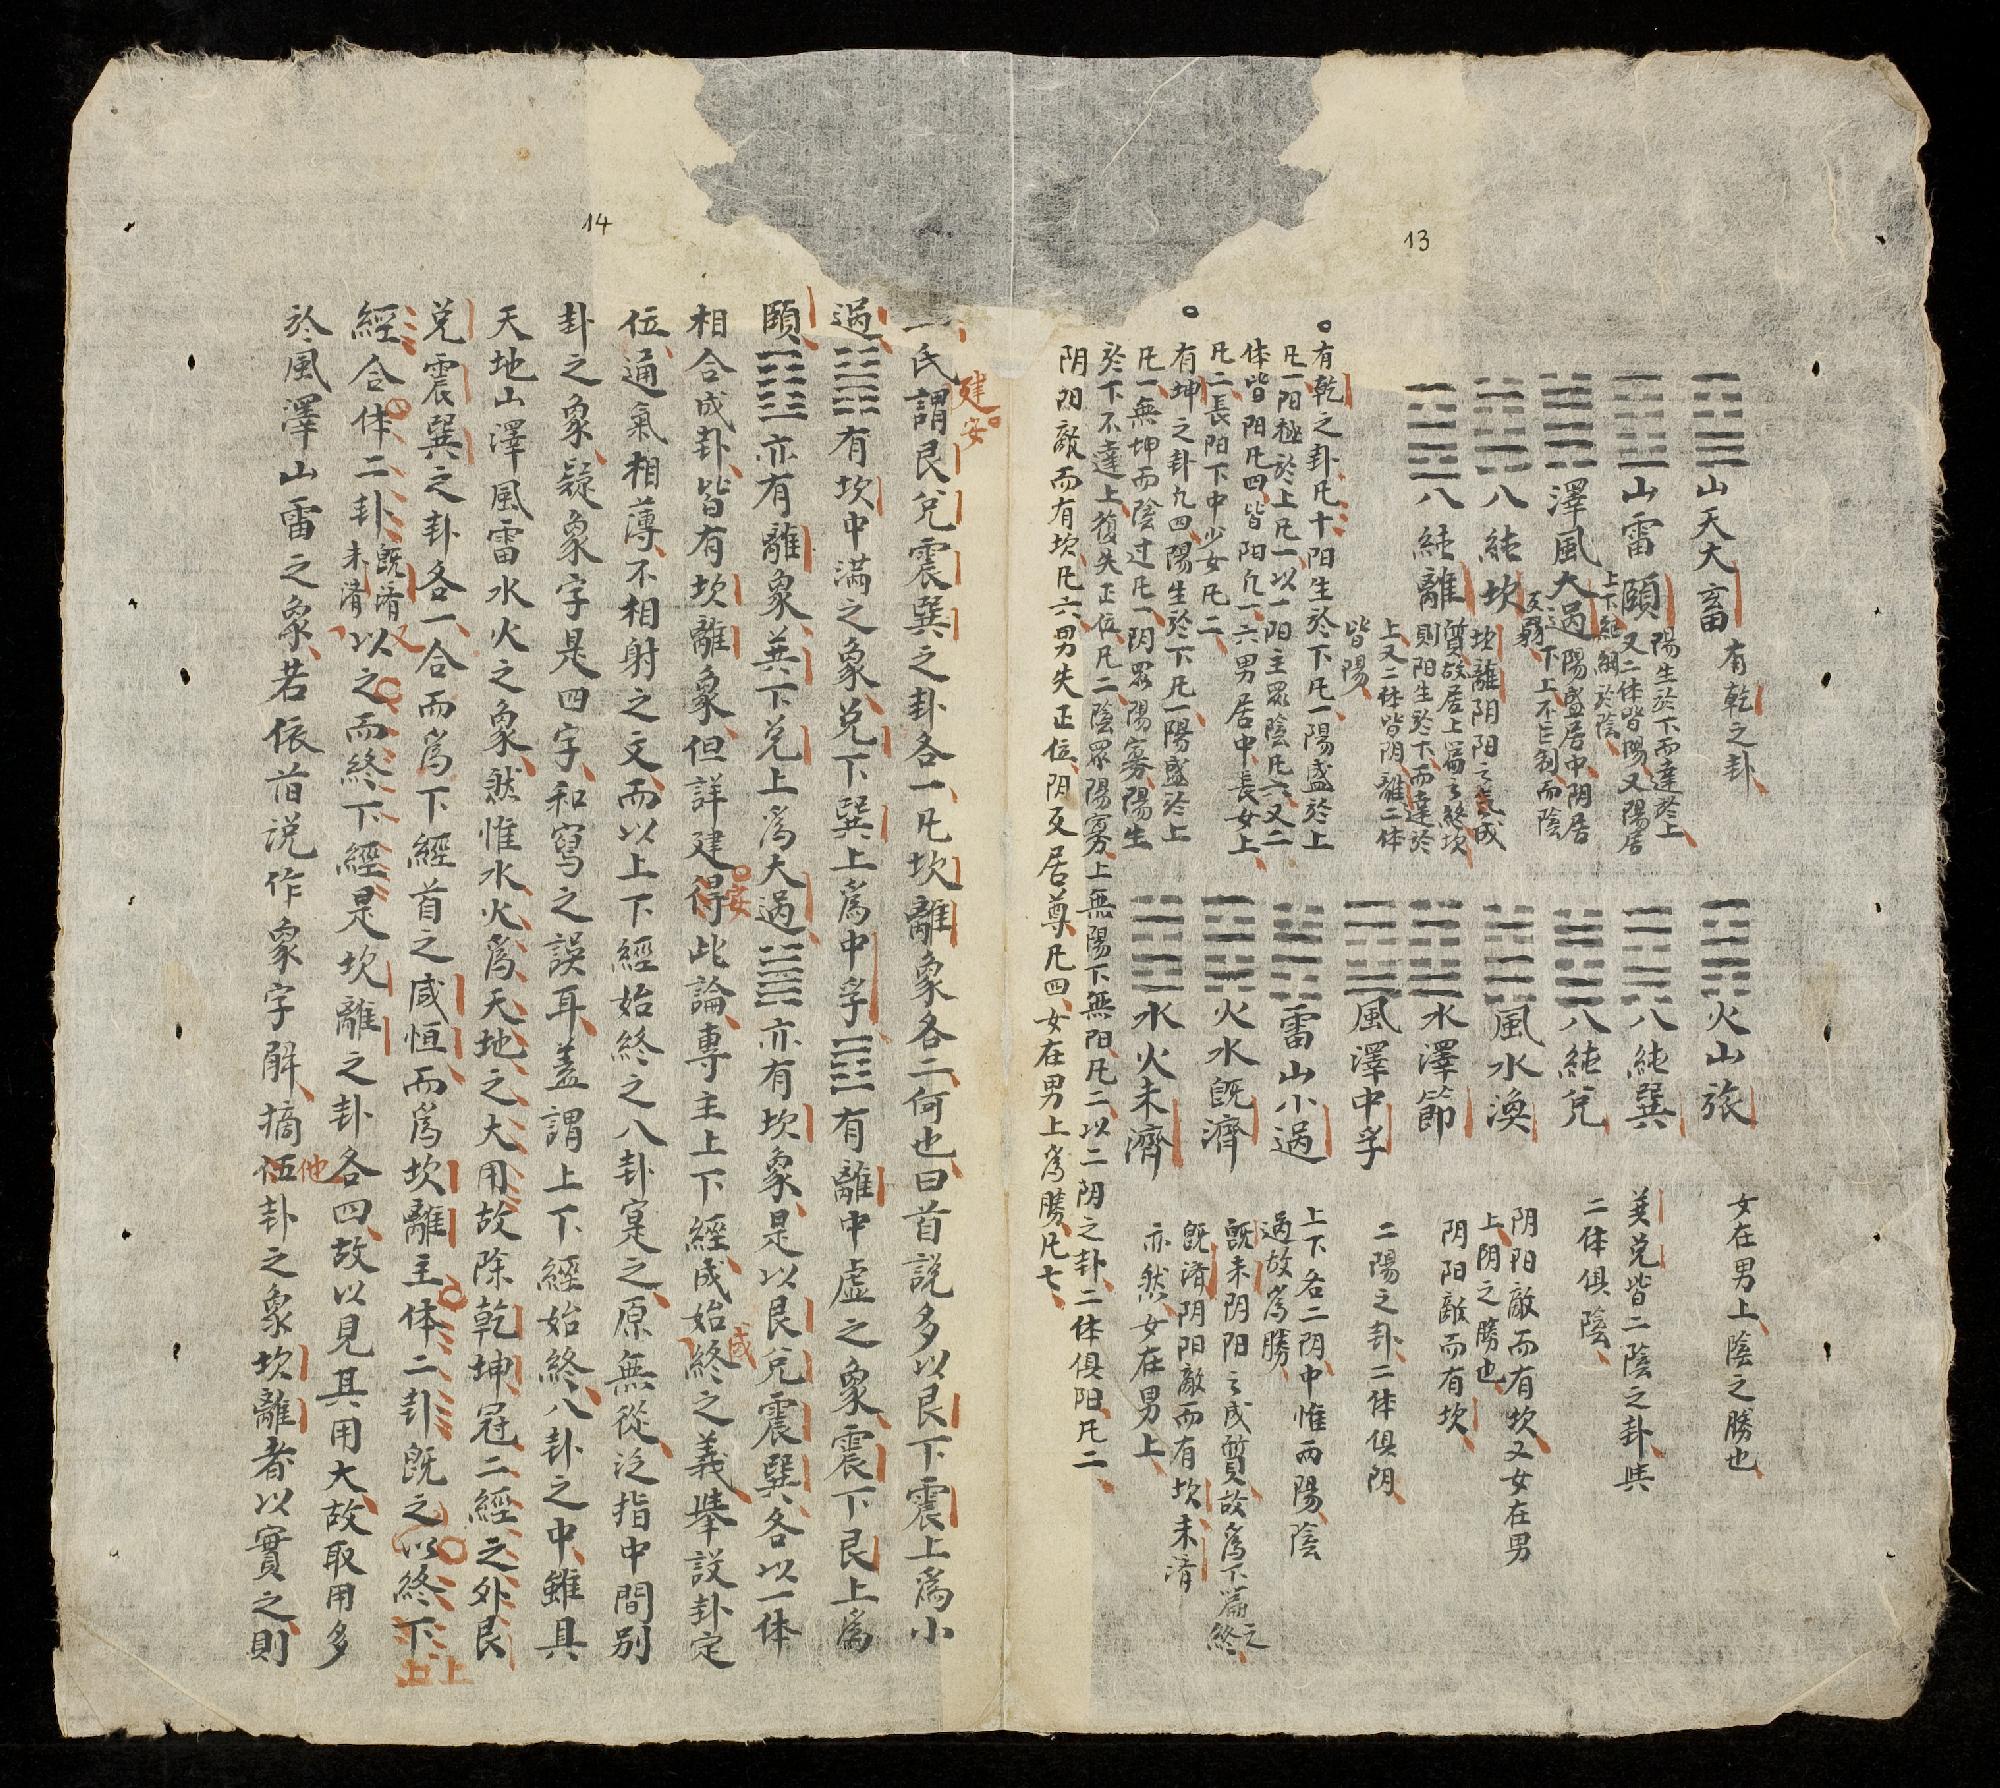 13
山天大畜
有乾之卦
山雷頤
陽生於下而達於上
又二体皆陽又陽居
上下
於陰
澤風大過
陽盛居中阴居
下上不
而陰
八純坎
坎離阴阳之
成
質故居上篇之終坎
則阳生於下而達於
上又二体皆阴離二体
皆陽
八純離
火山旅
女在男上陰之勝也
八純巽
巽兌皆二陰之卦
二体俱陰
八純兌
風水渙
阴阳敵而有坎又女在男
上阴之勝也
水澤節
阴阳敵而有坎
風澤中孚
二陽之卦二体俱阴
雷山小過
上下各二阴中惟两陽陰
過故為勝
火水既濟
既未阴阳之成質故為下篇之終
既济阴阳敵而有坎未済
水火未濟
亦然女在男上
有乾之卦凡十阳生於下凡一陽盛於上
凡一阳極於上凡一以一阳主眾陰凡六又二
体皆阳凡四皆阳凢一六男居中長女上
凡二長阳下中少女凡二
有坤之卦凢四陽生於下凡一陽盛於上
凡一無坤而陰过凡一阴眾陽寡陽生
於下不達上復失正位凡二陰眾陽寡上無陽下無阳凡二以二阴之卦二体俱阳凡二
阴阳敵而有坎凡六男失正位阴反居尊凡四女在男上為勝凡七
14
建安
氏謂艮兌震巽之卦各一凡坎離象各二何也曰首說多以艮下震上為小
過有坎中滿之象兌下巽上為中孚有離中虛之象震下艮上為
頤亦有離象巽下兌上為大過亦有坎象是以艮兌震巽各以一体
相合成卦皆有坎離象但詳建得此論專主上下經成始終之義舉設卦定
安
成
位通氣相薄不相射之文而以上下經始終之八卦寔之原無從泛指中間别
卦之象疑象字是四字和寫之誤耳盖謂上下經始終八卦之中雖具
天地山澤風雷水火之象然惟水火為天地之大用故除乾坤冠二經之外艮
兌震巽之卦各一合而為下經首之咸恒而為坎離主体二卦既之以終下
上上
經合体二卦既濟未濟以之而終下經是坎離之卦各四故以見其用大故取用多
於風澤山雷之象若依首説作象字解摘伍卦之象坎離者以實之則
他